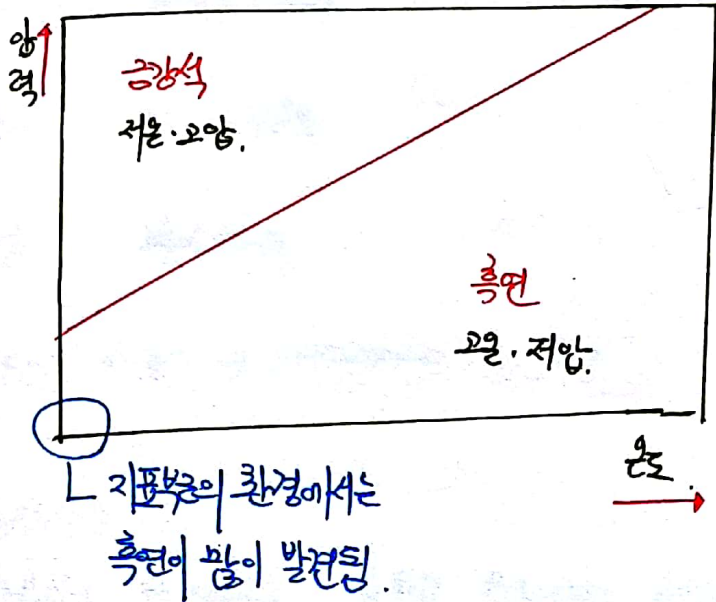 압력
금강석
저온·고압.
흑연
고온·저압.
온도
지표부근의 환경에서는
흑연이 많이 발견됨.